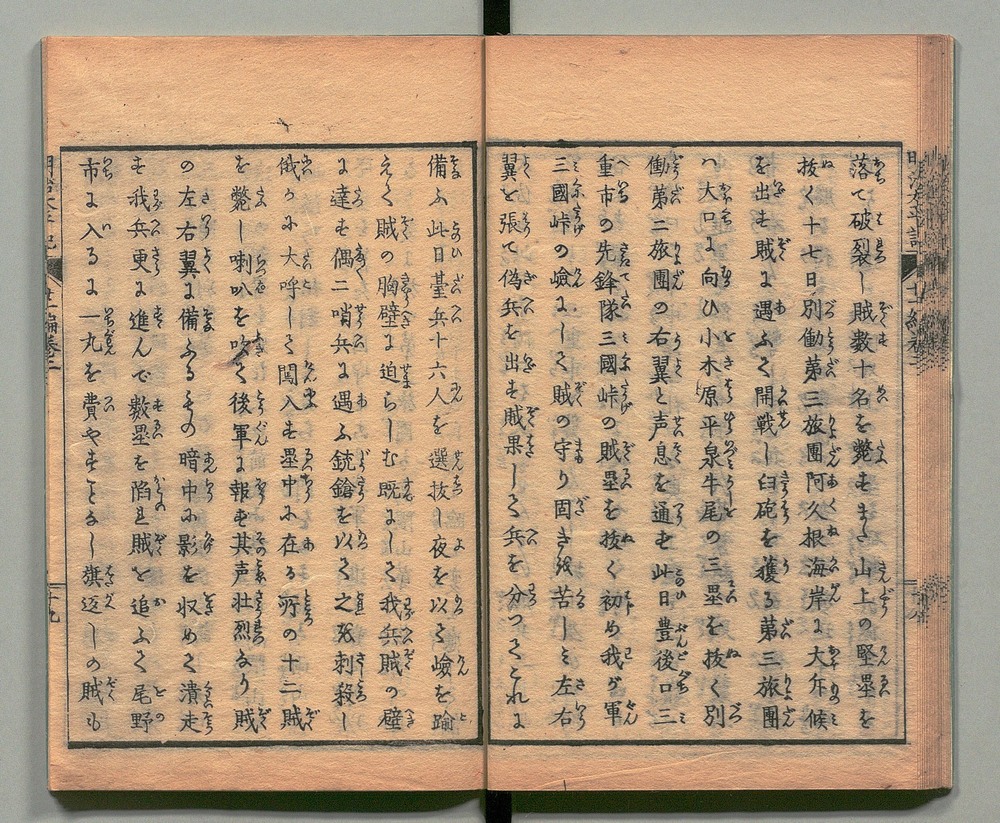 落て破裂し賊数十名を斃すまた山上の堅塁を
抜く十七日別働第三旅團阿久根海岸に大斥候
を出す賊に遇ふて開戦し臼砲を獲る第三旅團
ハ大口に向ひ小木原平泉牛尾の三塁を抜く別
働第二旅團の右翼と声息を通ず此日豊後口三
重市の先鋒隊三國峠の賊塁を抜く初め我が軍
三國峠の嶮にして賊の守り固きに苦しミ左右
翼を張て偽兵を出す賊果して兵を分つてこれに
備ふ此日臺兵十六人を選抜し夜を以て嶮を踰
えて賊の胸壁に迫らしむ既にして我兵賊の壁
に達す偶二哨兵に遇ふ銃鎗を以て之を刺殺し
俄かに大呼して闖入す塁中に在る所の十二賊
を斃し喇叭を吹て後軍に報ず其声壮烈なり賊
の左右翼に備ふるもの暗中に影を収めて潰走
す我兵更に進んで數塁を陥れ賊を追ふて尾野
市に入るに一丸を費やすことなし旗返しの賊も